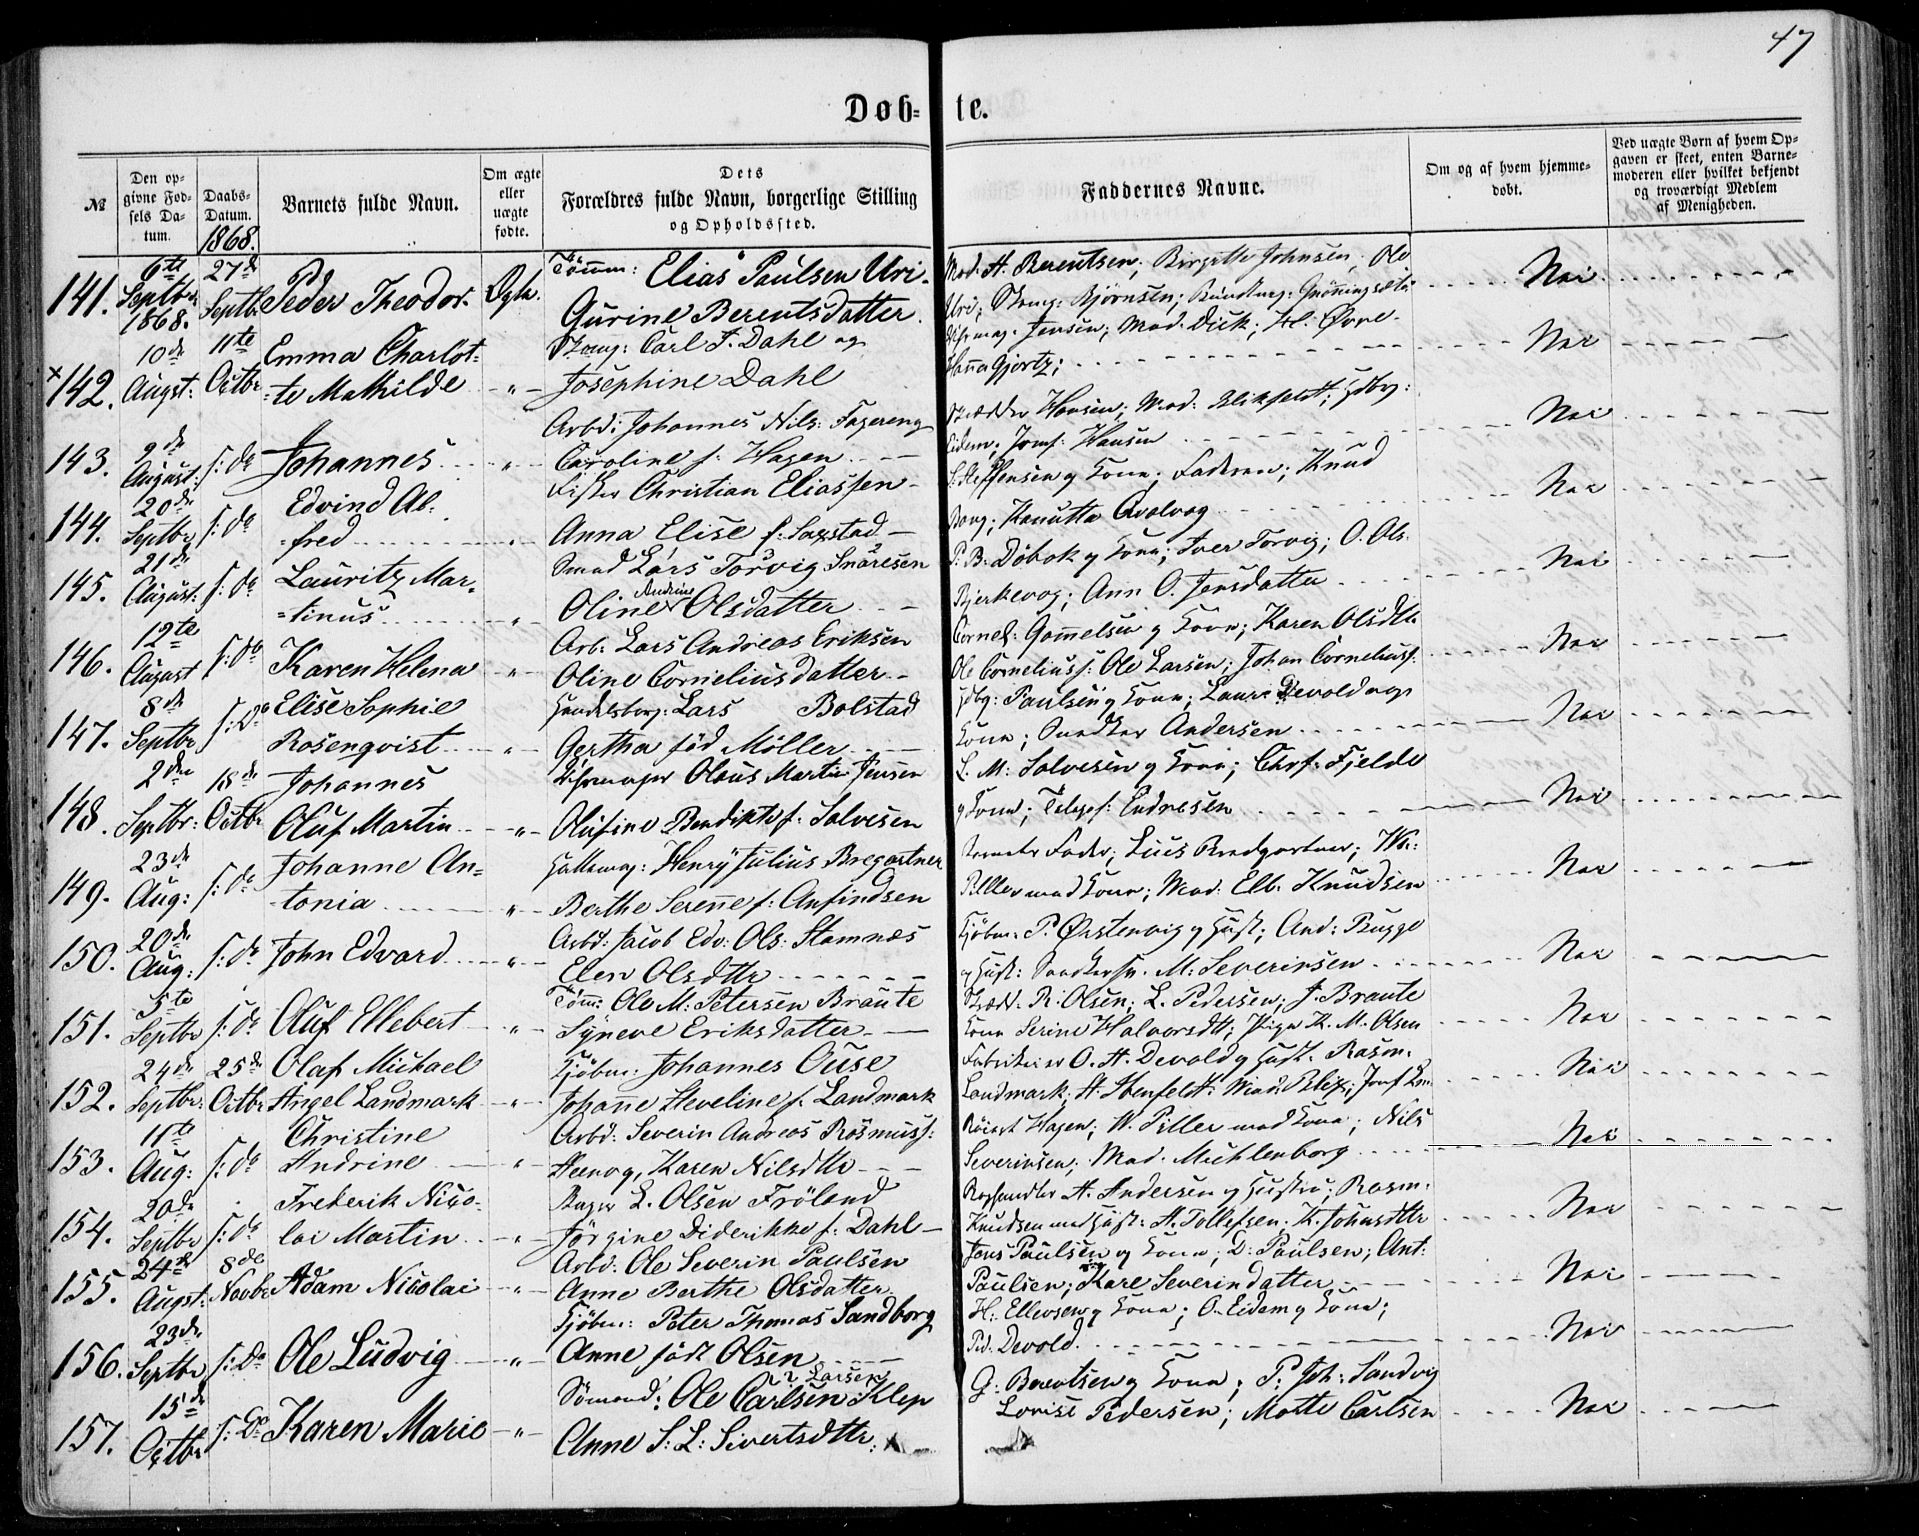 47
Døb-te.
№
Den opgivne Fødsels Datum.
Daabs-Datum. 1868.
Barnets fulde Navn.
Om ægte eller uægte fødte.
Dets Forældres fulde Navn, borgerlige Stilling og Opholdssted.
Faddernes Navne.
Om og af hvem hjemmedøbt.
Ved uægte Børn af hvem Opgaven er skeet, enten Barnemoderen eller hvilket bekjendt og troværdigt Medlem af Menigheden.
141. 6te Septbr. 1868. 27de Septbr Peder Theodor. Ægte. Tømm: Elias Paulsen Uri-
Gurine Berentsdatter.
Mad. A. Berentsen; Birgitte Johnsen; Ole
Uri; Skomg: Bjørnsen; Nei
142. 10de Augst: 11te Octbr Emma Charlot-
-te Mathilde -"- Skomg: Carl F. Dahl og
Josephine Dahl
Jensen; Mad. Dick; H. Øvre-
Hanna Gjørtz; Nei
143. 9de August: s: d. Johannes " Arbd: Johannes Nils: Fagereng
Caroline f: Hagen
Skrædder Hansen; Mad: Blikfeldt;
Eidem; Jomf: Hansen Nei
144. 20de Septbr s: d. Edvind Al-
-fred " Fisker Christian Eliassen-
Anna Elise f: Saxstad-
Steffensen og Kone; Faderen; Knud
Kanutta Nei
145. 21de August: s: d. Lauritz Mar-
-tinus " Smed Lars Torvig Snaresen
Oline Andrine Olsdatter
P. B. Døbak og Kone; Iver Torvig; O. Ols.
Bjerkevog; Ann O. Jensdatter Nei
146. 12te August s: d. Karen Helena " Arb: Lars Andreas Eriksen
Oline Corneliusdatter-
Cornel: Gammelsen og Kone; Karen Olsdtr
Ole Corneliuss: Ole Larsen; Johan Corneliuss. Nei
147. 8de Septbr s: D. Elise Sophie
Rosenqvist " Handelsborg: Lars Bolstad
Gertha fød Møller
Paulsen og Kone; Devold og
Kone; Snedker Andersen Nei
148. 2den Septbr: 18de Octbr Johannes
Oluf Martin -"- Olaus Martin Jensen
Olufine Bendikte f: Salvesen
L. M: Salvesen og Kone; Chrf: Fjelde
og Kone; Endresen Nei
149. 23de Aug: s: d. Johanne An-
tonia " Hattemag: Henry Julius Bregartner
Berthe Serenne f: Anfindsen
Mad: Elb. Knudsen Nei
150. 20de Aug: s: d. John Edvard -"- Arbd: Jacob Edv: Ols: Stamnæs
Elen Olsdtr
Kjøbm: P. Ørstenvig og Hust; And: Rugge
og Hust: M: Severinsen Nei
151. 5te Septbr s: d. Oluf Ellebert " Tøm: Ole M: Petersen Braute
Syneve Eriksdatter-
Skræd: R: Olsen; L. Pedersen; J. Braute
Kone Serine Halvorsdtr; Pige K. M. Olsen Nei
152. 24de Septbr: 25de Octbr Olaf Michael
Angel Landmark -"- Kjøbm: Johannes Ouse
Johanne Heveline f: Landmark
Fabrikeier O. A. Devold og Hust. Rasm.
Landmark; Mad: Blix; Nei
153. 11te Aug: s: d. Christine
Andrine " Arbd: Severin Andreas Rasmuss:
Karen Nilsdtr
Hagen; W. Piller med Kone; Nils
Severinsen; Mad. Muhlenborg Nei
154. 20de Septbr s: d. Frederik Nico-
lai Martin -"- Bager L. Olsen Frøland
Jørgine Diderikke f: Dahl-
A. Andersen og Hustru; Rasm.
Knudsen med Hust: A. Tollefsen. K. Johnsdtr Nei
155. 24de Augst: 8de Novbr Adam Nicolai -"- Arbd: Ole Severin Paulsen
Anne Berthe Olsdatter
Jens Paulsen og Kone; D: Paulsen; Ant:
Paulsen; Kare Severindatter Nei
156. 23de Septbr s: D. Ole Ludvig -"- Kjøbm: Peter Thomas Sandborg
Anne født Olsen
H: Ellevsen og Kone; O. Eidem og Kone;
Ped. Devold. Nei
157. 15de Octbr s: D. Karen Marie -"- Sømand: Ole Carlsen Klep
Larsen
Anne S: L: Sivertsdtr:
G: Berentsen og Kone; P. Joh: Sandvig
Lovise Pedersen; Mette Carlsen Nei